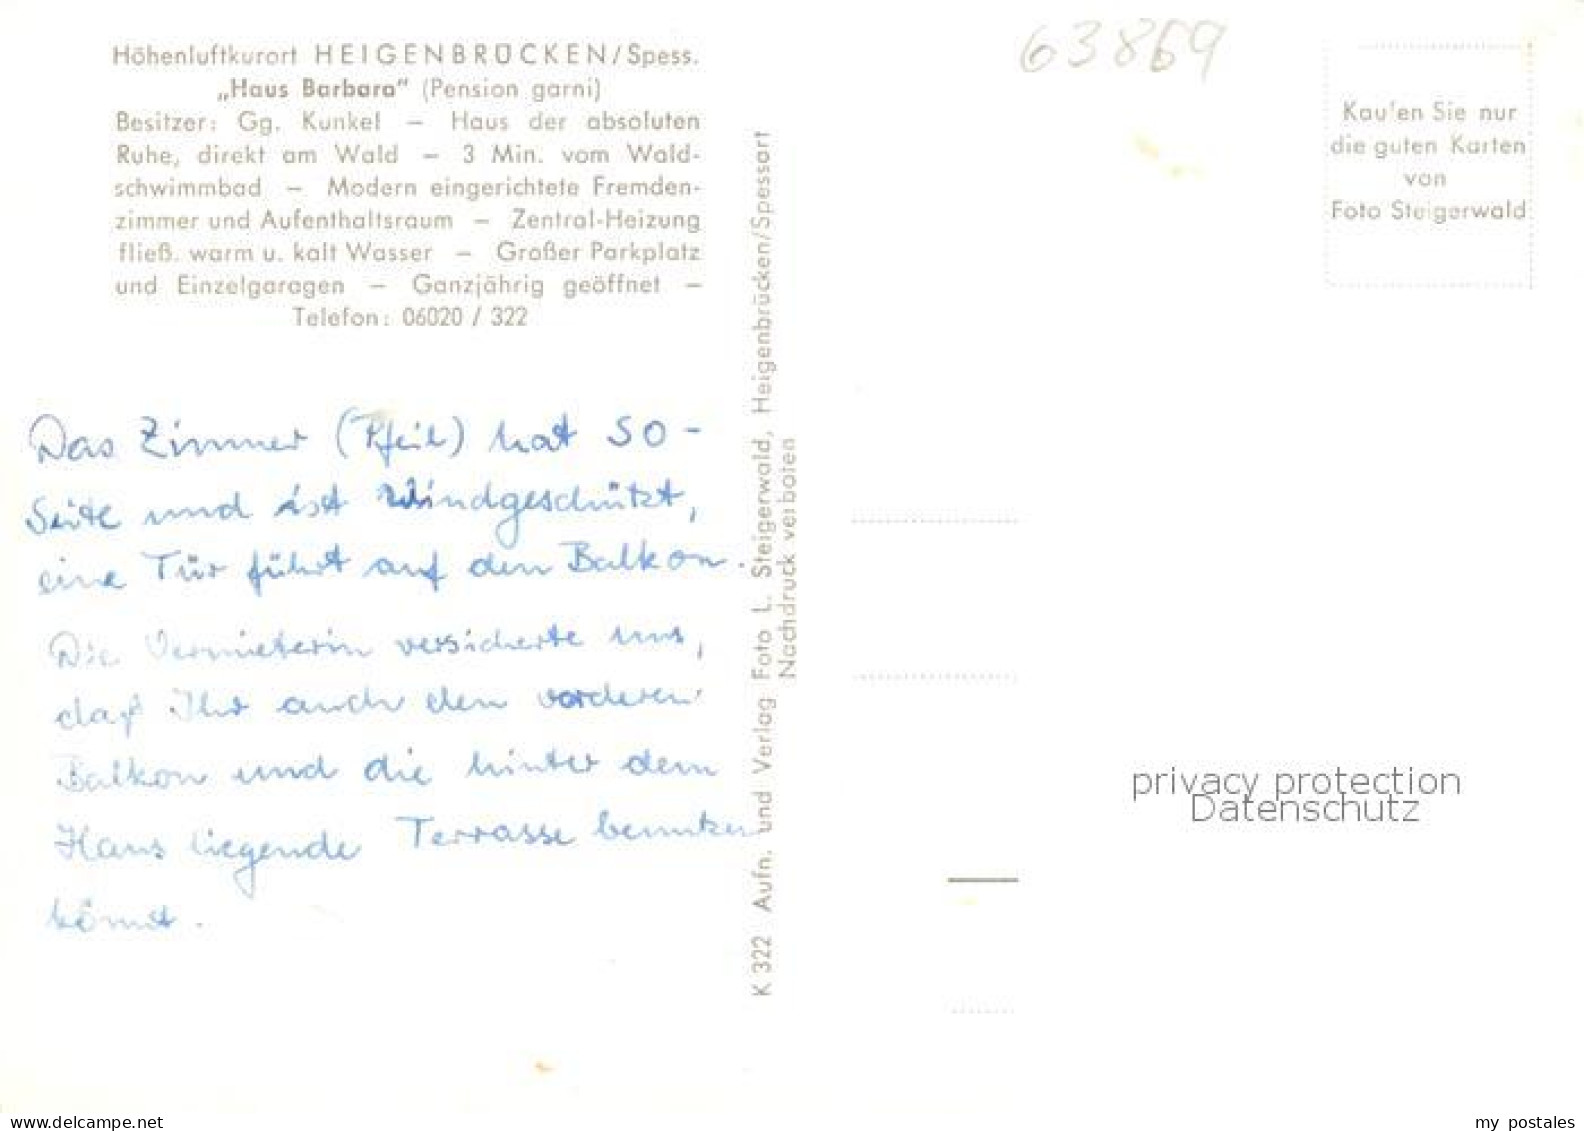 Höhenluftkurort HEIGENBRÜCKEN/Spess.
„Haus Barbara" (Pension garni)
Besitzer: Gg. Kunkel — Haus der absoluten
Ruhe, direkt am Wald — 3 Min. vom Wald-
schwimmbad — Modern eingerichtete Fremden-
zimmer und Aufenthaltsraum — Zentral-Heizung
fließ. warm u. kalt Wasser — Großer Parkplatz
und Einzelgaragen — Ganzjährig geöffnet —
Telefon: 06020 / 322
Das Zimmer (Pfeil) hat SO-
Seite und ist windgeschützt,
eine Tür führt auf den Balkon.
Die Vermieterin versicherte uns,
daß Ihr auch den vorderen
Balkon und die hinter dem
Haus liegende Terrasse benutzen
könnt.
K 322 Aufn. und Verlag Foto L. Steigerwald, Heigenbrücken/Spessart
Nachdruck verboten
63869
Kaufen Sie nur
die guten Karten
von
Foto Steigerwald
privacy protection
Datenschutz
www.delcampe.net
my_postales